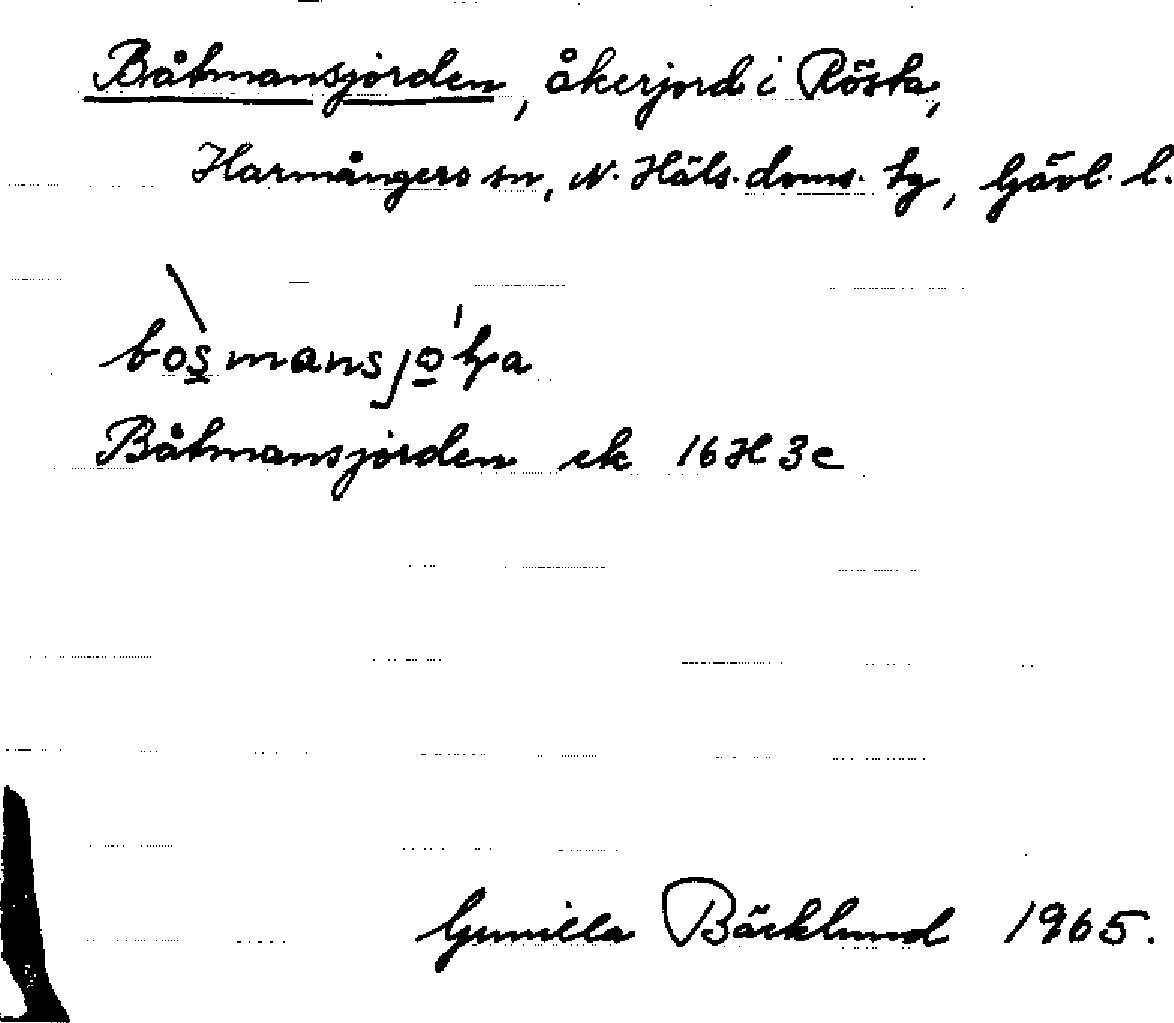 Båtmansjorden, åkerjord i Rösta,
Harmångers sn, N. Häls. doms. tg, Gävl. l.
Båtmansjorden ek 16H3c
Gunilla Bäcklund 1965.